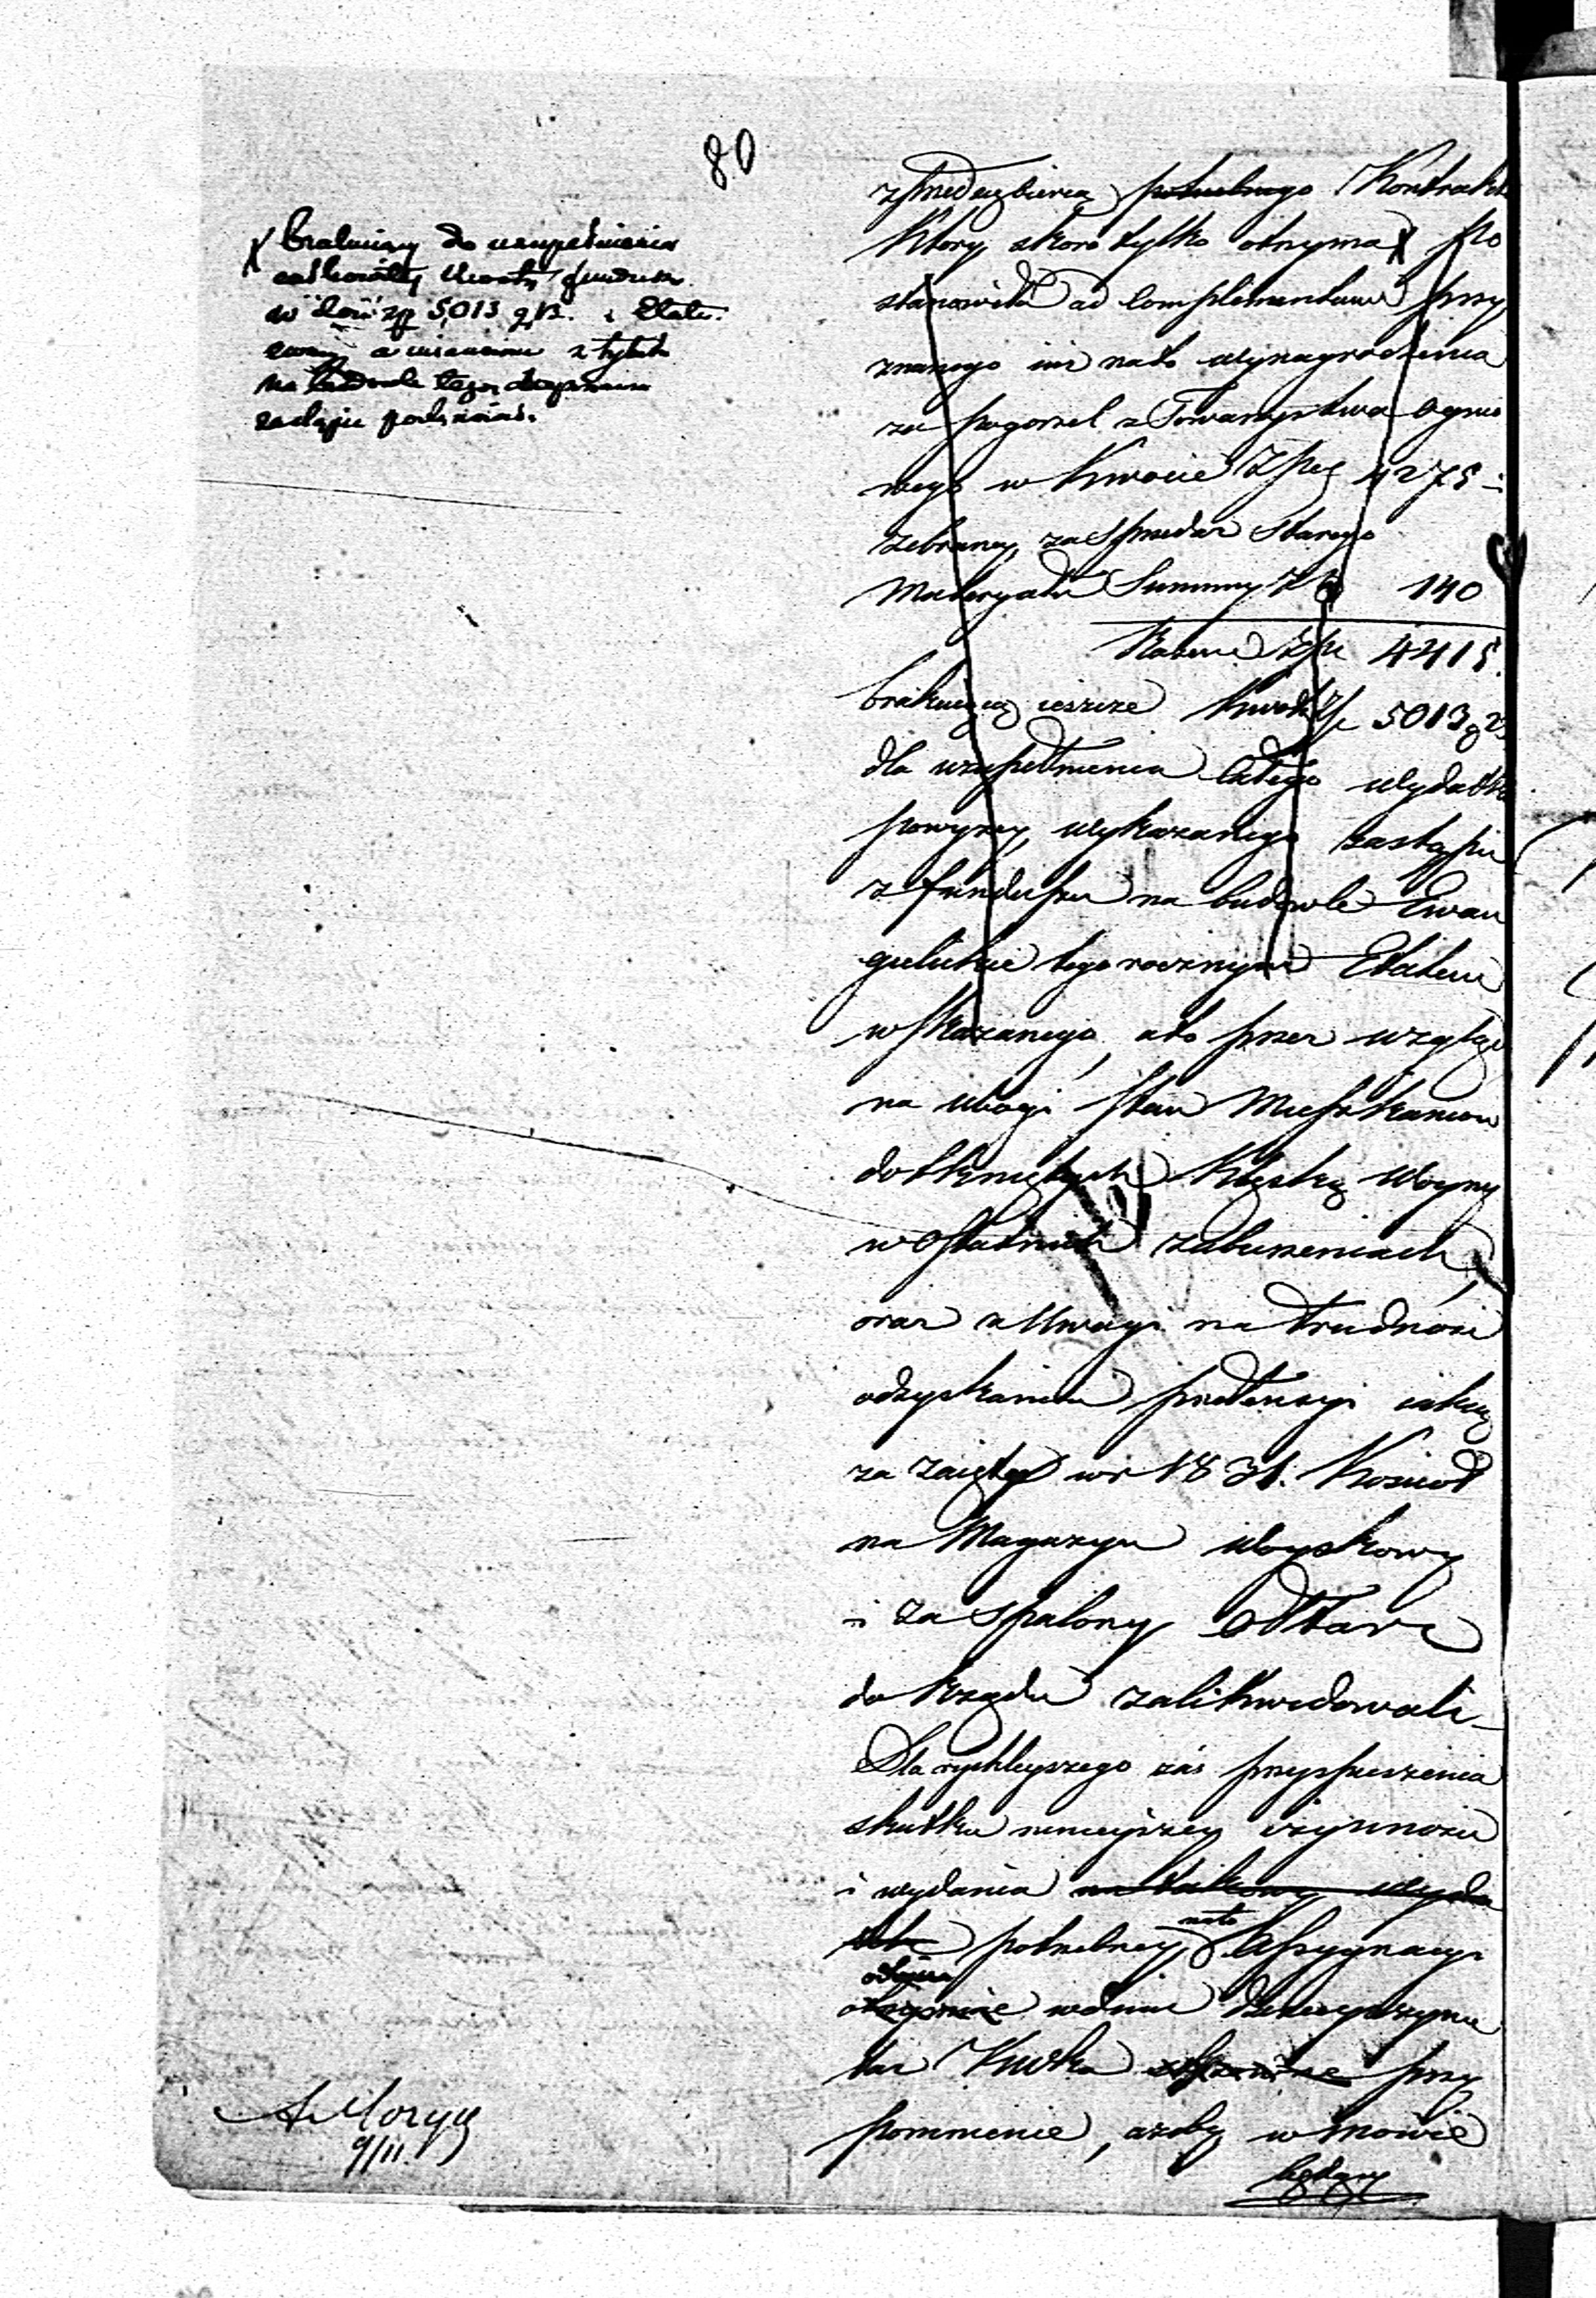 80
X Brakuiący do uzupełnienia
całkowitey kwoty fundusz
w ilości zp 5,013 g 12. z Etatu
na budowle tego
zastąpić
z przedsiębiercą potrzebnego Kontraktu
Który skoro tylko otrzyma X po
stanowiła ad complementum przy
znanego im na to wynagrodzenia
za pogorzel z Towarzystwa Ognio
wego w Kwocie Złp 4275 -
zebraney za Sprzedaż Starego
Materyału Summy Zł 140
Razem Złp 4415.
brakuiącą ieszcze Kwotę Zł 5013 g
dla uzupełnienia całego wydatku
powyżey wykazanego zastąpić
z funduszu na budowle Ewan
gielickie tegorocznym Etatem
wskazanego, a to przez wzgląd
na ubogi stan Mieszkańców
dotkniętych klęską Woyny
w ostatnich zaburzeniach,
oraz z Uwagi na trudność
odzyskania pretensyi iaką
za zaięty w r 1831. Kościół
na Magazyn Woyskowy
i za Spalony Ołtarz
do Rządu zalikwidowali -
Dla rychleyszego zaś przyspieszenia
skutku ninieyszey czynności
i wydania na takowy wyda
tek potrzebney na to Assygnacyi
w dniu dzisieyszym
taż Kwka przy
pomnienie, ażeby w mowie
będący
A Moryc
9/11